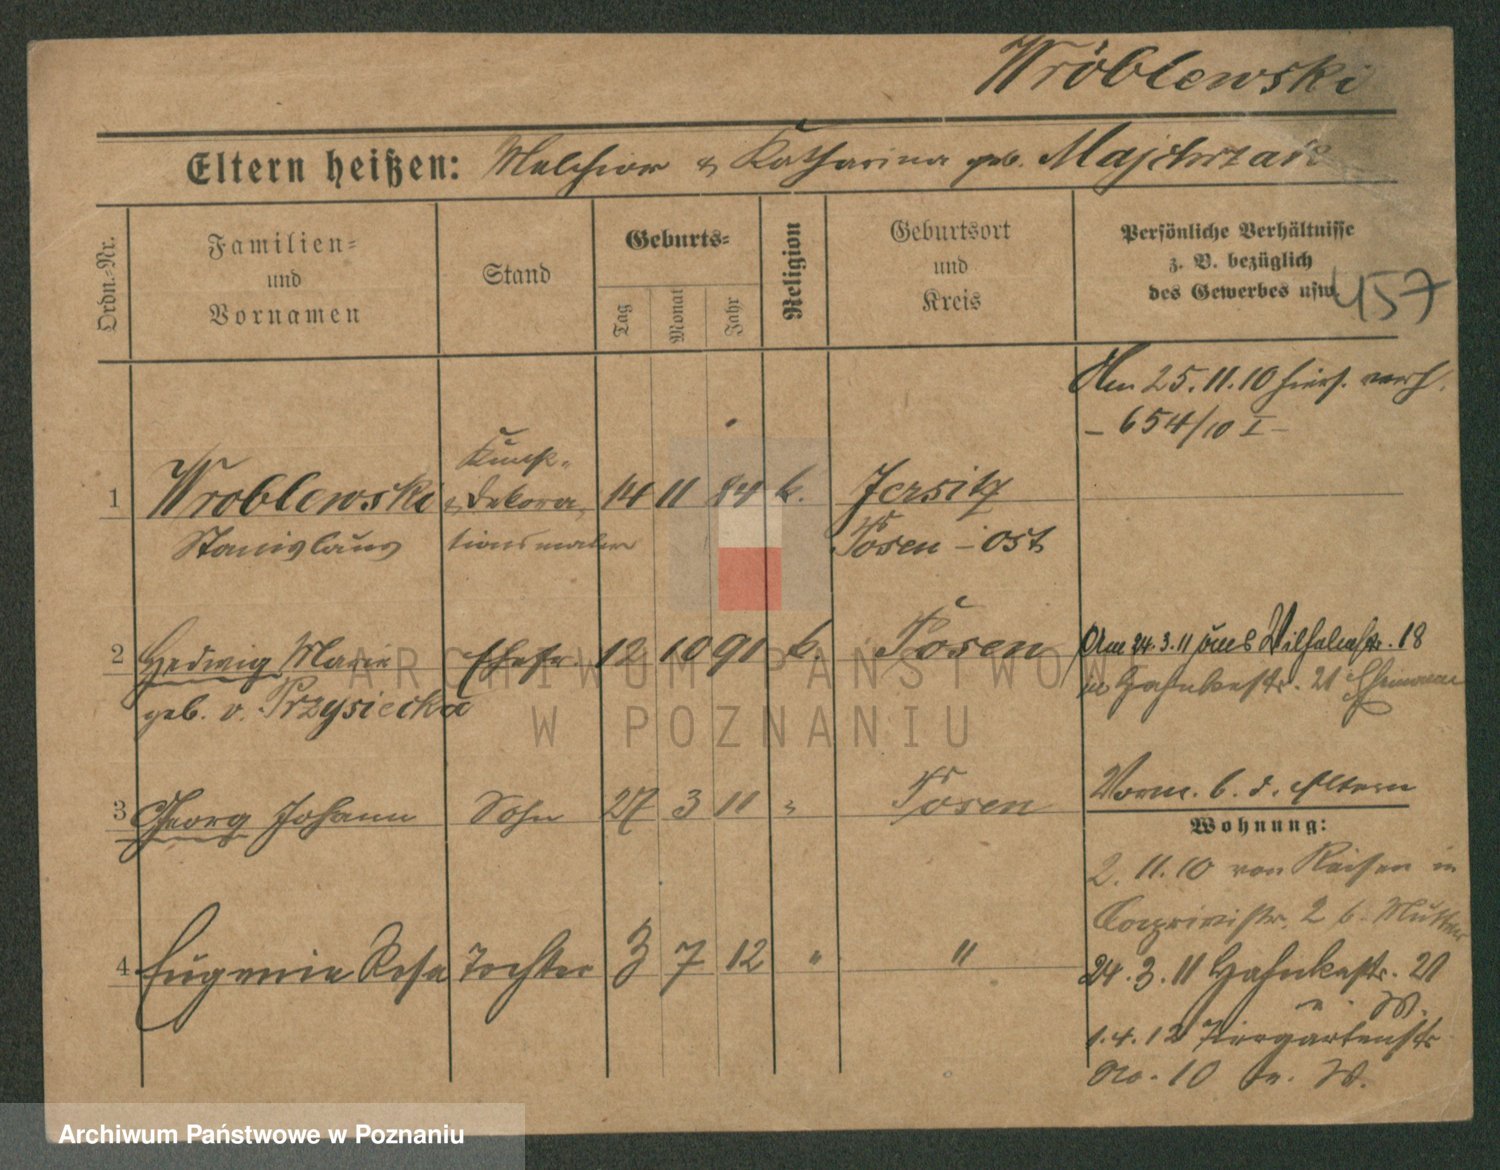 Wröblewski
Eltern heißen: Melchior & Katharina geb. Majchrzak
Ordn.-Nr.
Familien- und Vornamen
Stand
Geburts-
Tag
Monat
Jahr
Religion
Geburtsort und Kreis
Persönliche Verhältnisse
z. B. bezüglich
des Gewerbes usw.
457
Am 25.11.10 hiers. verh.
- 654/10 I -
1 Wroblewski Kunst- & Dekora- 14 11 84 k. Jersitz
Stanislaus tionsmaler Posen-Ost
2 Hedwig Marie Ehefr. 12 10 91 k. Posen
geb. v. Przysiecka
Am 24.3.11 Wilhelmstr. 18
Posen
3 Georg Johann Sohn 27 3 11 " Posen
Vorm. b. d. Eltern
Wohnung:
2.11.10 von Reisen in
2 b. Mutter
4 Eugenie Rosa Tochter 3 7 12 " "
24.3.11 21
u. W.
1.4.12 Tiergartenstr
No. 10 u. W.
ARCHIWUM PAŃSTWOWE
W POZNANIU
Archiwum Państwowe w Poznaniu